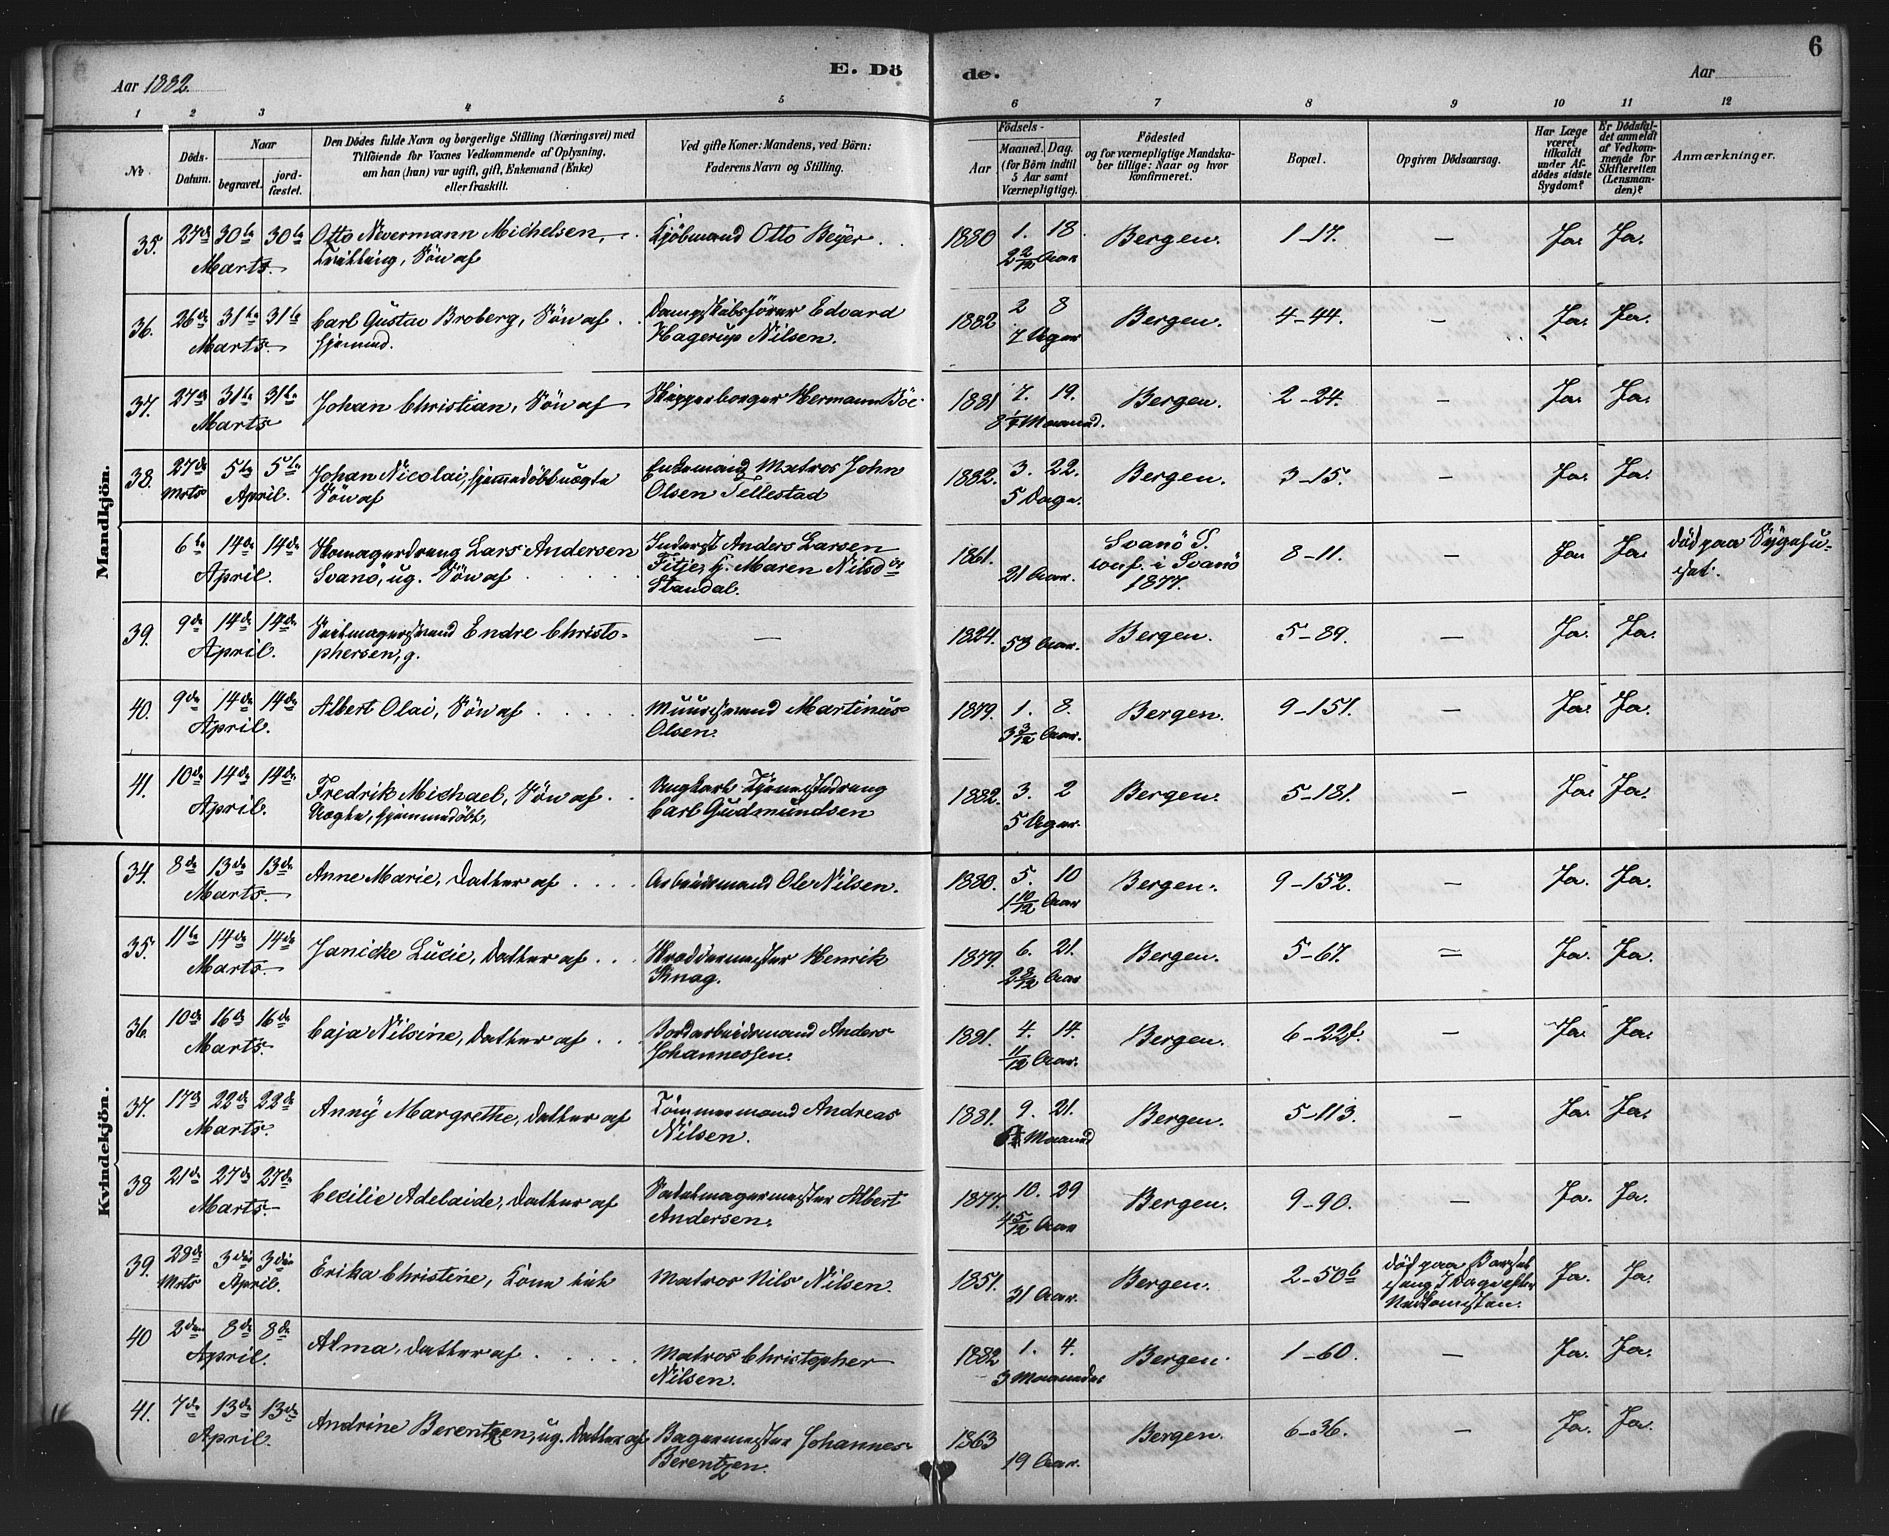 Aar 1882. E. Dö de. Aar 6
1 2 3 4 5 6 7 8 9 10 11 12
No. Döds-Datum. Naar begravet. jordfæstet. Den Dödes fulde Navn og borgerlige Stilling (Næringsvei) med Tilföiende for Voxnes Vedkommende af Oplysning, om han (hun) var ugift, gift, Enkemand (Enke) eller fraskilt. Ved gifte Koner: Mandens, ved Börn: Faderens Navn og Stilling. Födsels- Aar Maaned. Dag. (for Börn indtil 5 Aar samt Værnepligtige). Födested og for værnepligtige Mandskaber tillige: Naar og hvor konfirmeret. Bopæl. Opgiven Dödsaarsag. Har Læge været tilkaldt under Afdödes sidste Sygdom? Er Dödsfaldet anmeldt af Vedkommende for Skifteretten (Lensmanden)? Anmærkninger.
Mandkjön.
35. 27de 30te 30te Marts. Otto Nevermann Michelsen, Tvilling, Sön af Kjöbmand Otto Beyer. 1880 1. 18. 2 2/12 Aar Bergen. 1-17. — Ja. Ja.
36. 26de 31te 31te Marts. Carl Gustav Broberg, Sön af hjemmed. Dampskibsförer Edvard Hagerup Nilsen. 1882 2 8 7 Uger Bergen. 4-44. — Ja. Ja.
37. 27de 31te 31te Marts Johan Christian, Sön af Skipperborger Hermann Böe 1881 7. 19. 8 1/4 Maaned. Bergen. 2-24. — Ja. Ja.
38. 27de Mrts 5te 5te April. Johan Nicolai, hjemmedöbt uægte Sön af Enkemand Matros John Olsen Tellestad 1882. 3. 22. 5 Dage. Bergen. 3-15. — Ja. Ja.
6te 14de 14de April. Skomagerdreng Lars Andersen Svanö, ug. Sön af Inderst Anders Larsen Fitje, h. Maren Nilsdr Standal. 1861. 21 Aar. Svanö S. conf. i Svanö 1877. 8-11. — Ja. Ja. död paa Sygehuset.
39. 9de 14de 14de April. Seilmagersvend Endre Christophersen, g. — 1824. 58 Aar. Bergen. 5-89. — Ja. Ja.
40. 9de 14de 14de April. Albert Olai, Sön af Muursvend Martinus Olsen. 1879. 1. 8. 3 3/12 Aar. Bergen. 9-151. — Ja. Ja.
41. 10de 14de 14de April. Fredrik Michael, Sön af Uægte, hjemmedöbt, Ungkarl Tjenestedreng Carl Gudmundsen 1882. 3. 2 5 Uger. Bergen. 5-181. — Ja. Ja.
Kvindekjön.
34. 8de 13de 13de Marts. Anne Marie, Datter af Arbeidsmand Ole Nilsen. 1880. 5. 10 1 10/12 Aar Bergen. 9-152. — Ja. Ja.
35. 11te 14de 14de Marts. Janicke Lucie, Datter af Skræddermester Henrik Knag. 1879. 6. 21. 2 8/12 Aar Bergen. 5-67. — Ja. Ja.
36. 10de 16de 16de Marts. Caja Nilsine, Datter af Jordarbeidsmand Anders Johannessen. 1881. 4. 14. 11/12 Aar. Bergen. 6-22f. — Ja. Ja.
37. 17de 22de 22de Marts. Anny Margrethe, Datter af Tömmermand Andreas Nilsen. 1881. 9. 21. Maaned Bergen. 5-113. — Ja. Ja.
38 21de 27de 27de Marts. Cecilie Adelaide, Datter af Sadelmagermester Albert Andersen. 1877. 10. 29 4 5/12 Aar Bergen. 9-90. — Ja. Ja.
39. 28de Mrts 3die 3die April. Erika Christine, Kone til Matros Nils Nilsen. 1851. 31 Aar. Bergen. 2-50b död paa Barselseng 7 Dage efter Nedkomsten. Ja. Ja.
40 2den 8de 8de April. Alma, Datter af Matros Christopher Nilsen. 1882 1. 4. 3 Maaneder Bergen. 1-60. — Ja. Ja.
41. 7de 13de 13de April. Andrine Berentzen, ug. Datter af Bagermester Johannes Berentzen. 1863 19 Aar. Bergen. 6-36. — Ja. Ja.